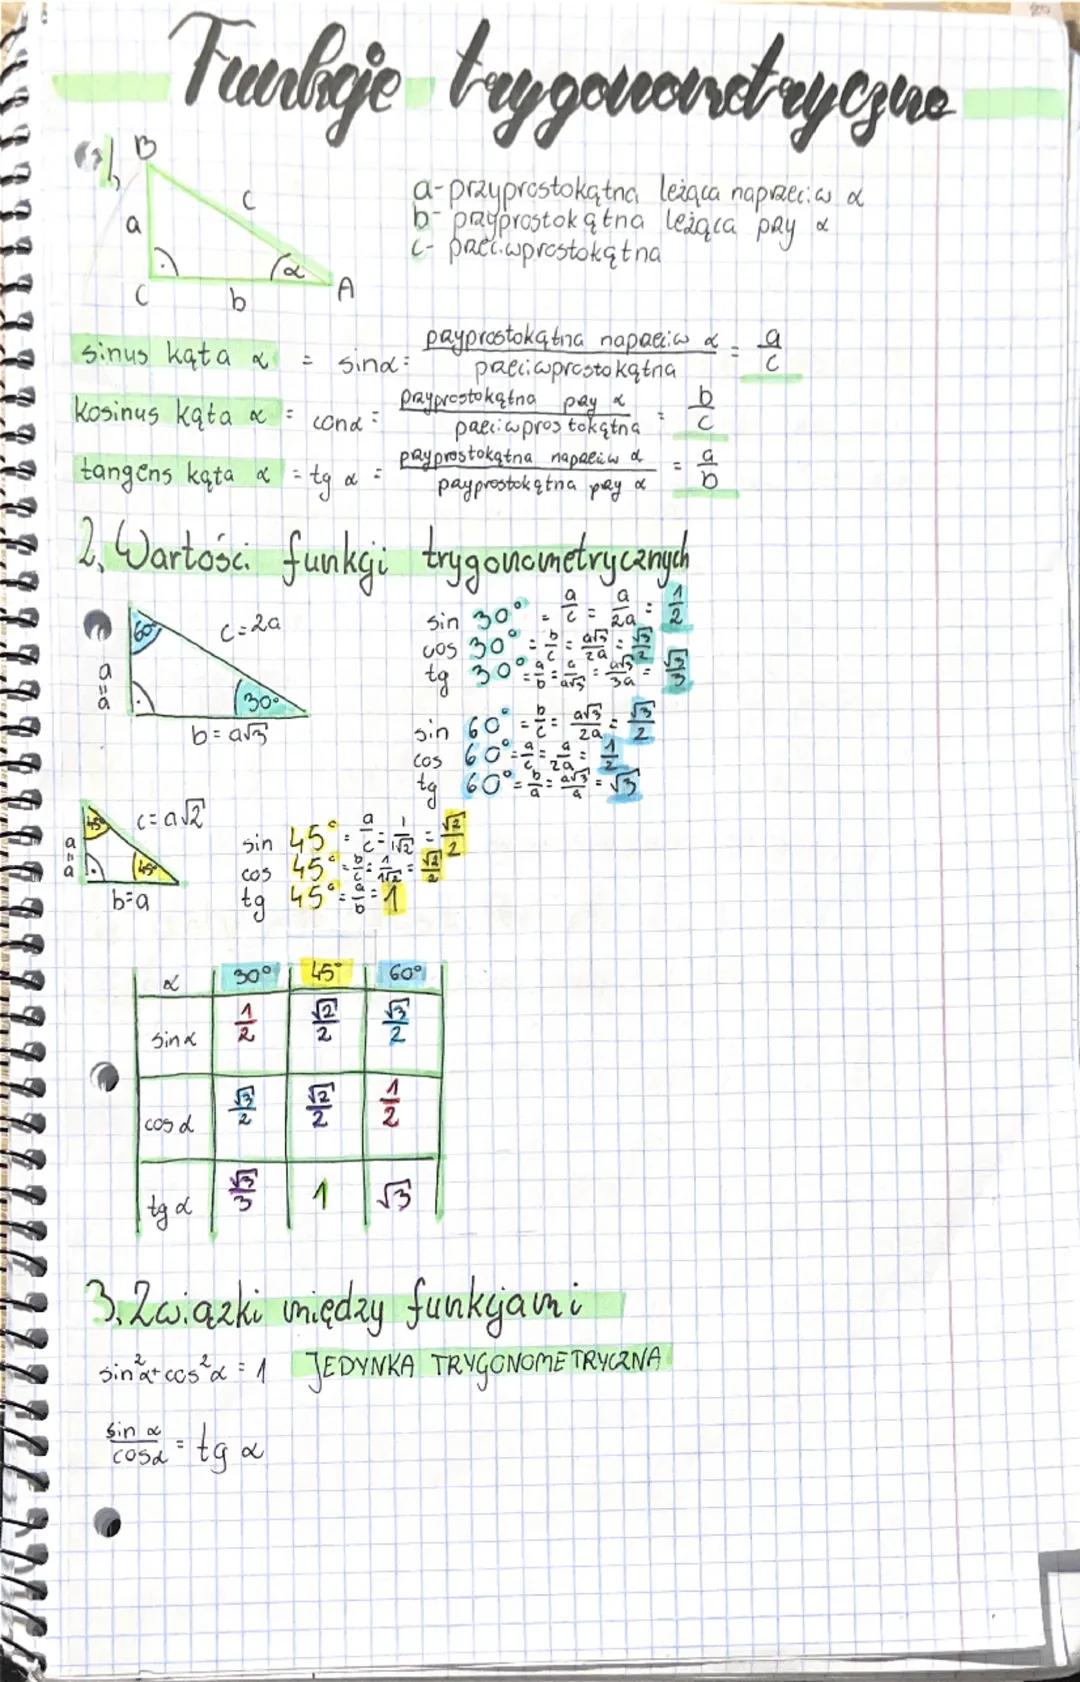 Funkcje trygonometryczne
1,
B
a
c
α
C
b
A
a- przyprostokątna leżąca naprzeciw α
b- przyprostokątna leżąca przy α
c- przeciwprostokątna
sinus kąta α = sinα = przyprostokątna naprzeciw α / przeciwprostokątna = a/c
kosinus kąta α = cosα = przyprostokątna przy α / przeciwprostokątna = b/c
tangens kąta α = tg α = przyprostokątna naprzeciw α / przyprostokątna przy α = a/b
2, Wartości funkcji trygonometrycznych
60°
c=2a
a=a
30°
b=a√3
sin 30° = a/c = a/2a = 1/2
cos 30° = b/c = a√3/2a = √3/2
tg 30° = a/b = a/a√3 = a√3/3a = √3/3
sin 60° = b/c = a√3/2a = √3/2
cos 60° = a/c = a/2a = 1/2
tg 60° = b/a = a√3/a = √3
45°
c=a√2
a=a
45°
b=a
sin 45° = a/c = 1/1√2 = √2/2
cos 45° = b/c = 1/1√2 = √2/2
tg 45° = a/b = 1
α 30° 45° 60°
sinα 1/2 √2/2 √3/2
cosα √3/2 √2/2 1/2
tgα √3/3 1 √3
3, Związki między funkcjami
sin²α+cos²α=1 JEDYNKA TRYGONOMETRYCZNA
sin α/cosα = tg α